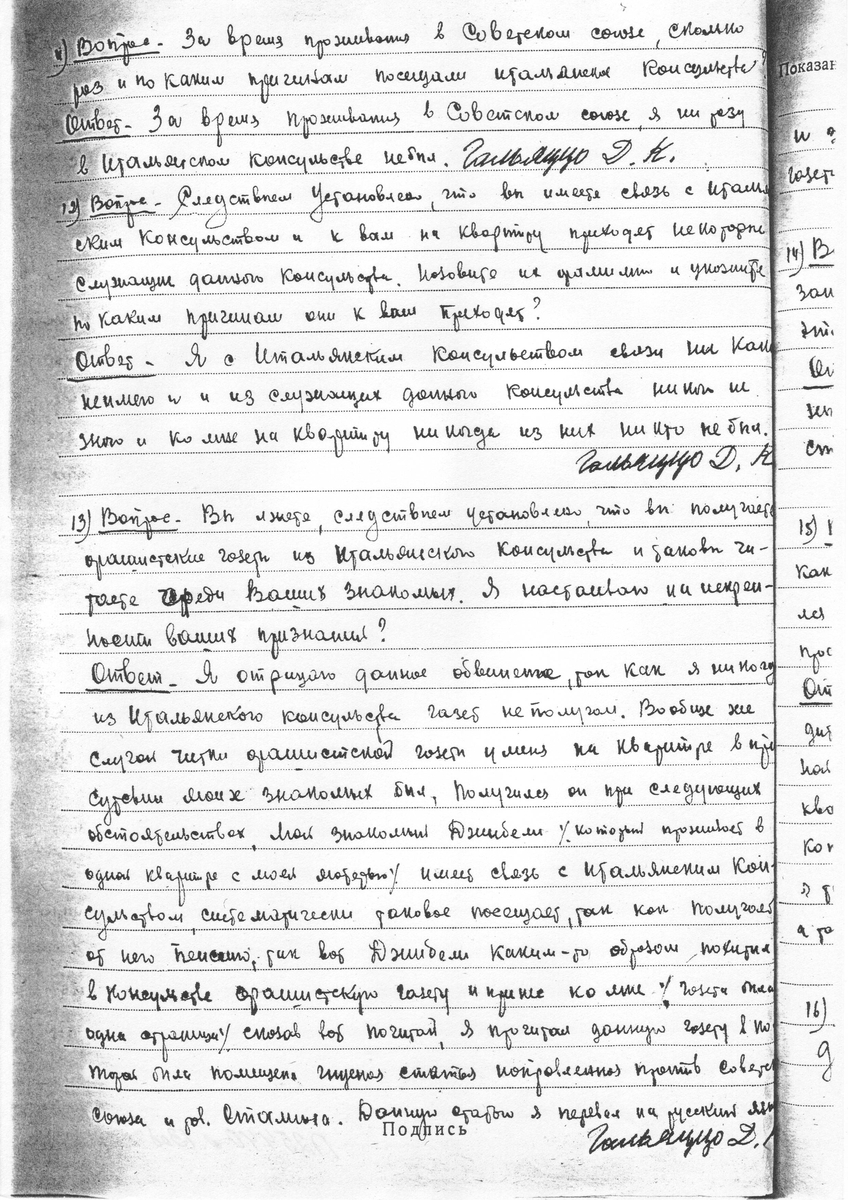 11) Вопрос- За время проживания в Советском союзе, сколько
раз и по каким причинам посещали итальянское консульство?
Ответ- За время проживания в Советском союзе, я ни разу
в Итальянском консульстве небыл. Гальяццо Д. К.
12) Вопрос- Следствием установлено, что вы имеете связь с Италья
ским консульством и к вам на квартиру приходят некоторые
служащие данного консульства. Назовите их фамилию и укажите
по каким причинам они к вам приходят?
Ответ- Я с Итальянским консульством связи ни как
неимею и и из служащих данного консульства никого не
знаю и ко мне на квартиру никогда из них никто небыл.
Гальяццо Д. К
13) Вопрос- Вы лжете, следствием установлено, что вы получаете
фашистские газеты из Итальянского консульства и таковы чи-
таете среди Ваших знакомых. Я настаиваю на искрен-
ности ваших признаний?
Ответ- Я отрицаю данное обвинение, так как я никогд
из Итальянского консульства газет неполучал. Вообще же
случай читки фашистской газеты у меня на квартире в при
сутствии моих знакомых был, Получился он при следующих
обстоятельствах, мой знакомый Джибели /. который проживает в
одной квартире с моей матерью / имеет связь с Итальянским Кон-
сульством, систематически таковое посещает, так как получает
от него пенсию, так вот Джибели каким-то образом похитил
в консульстве фашистскую газету и принес ко мне /. газета была
одна страница / сказав вот почитай, я прочитал данную газету в ко
торой была помещена гнусная статья направленная против советск
союза и тов. Сталина. Данную статью я перевел на русский язы
Подпись
Гальяццо Д.
Показан
и
газет
14) В
зан
эт
От
15)
как
лся
прос
От
кво
ко
а
16)